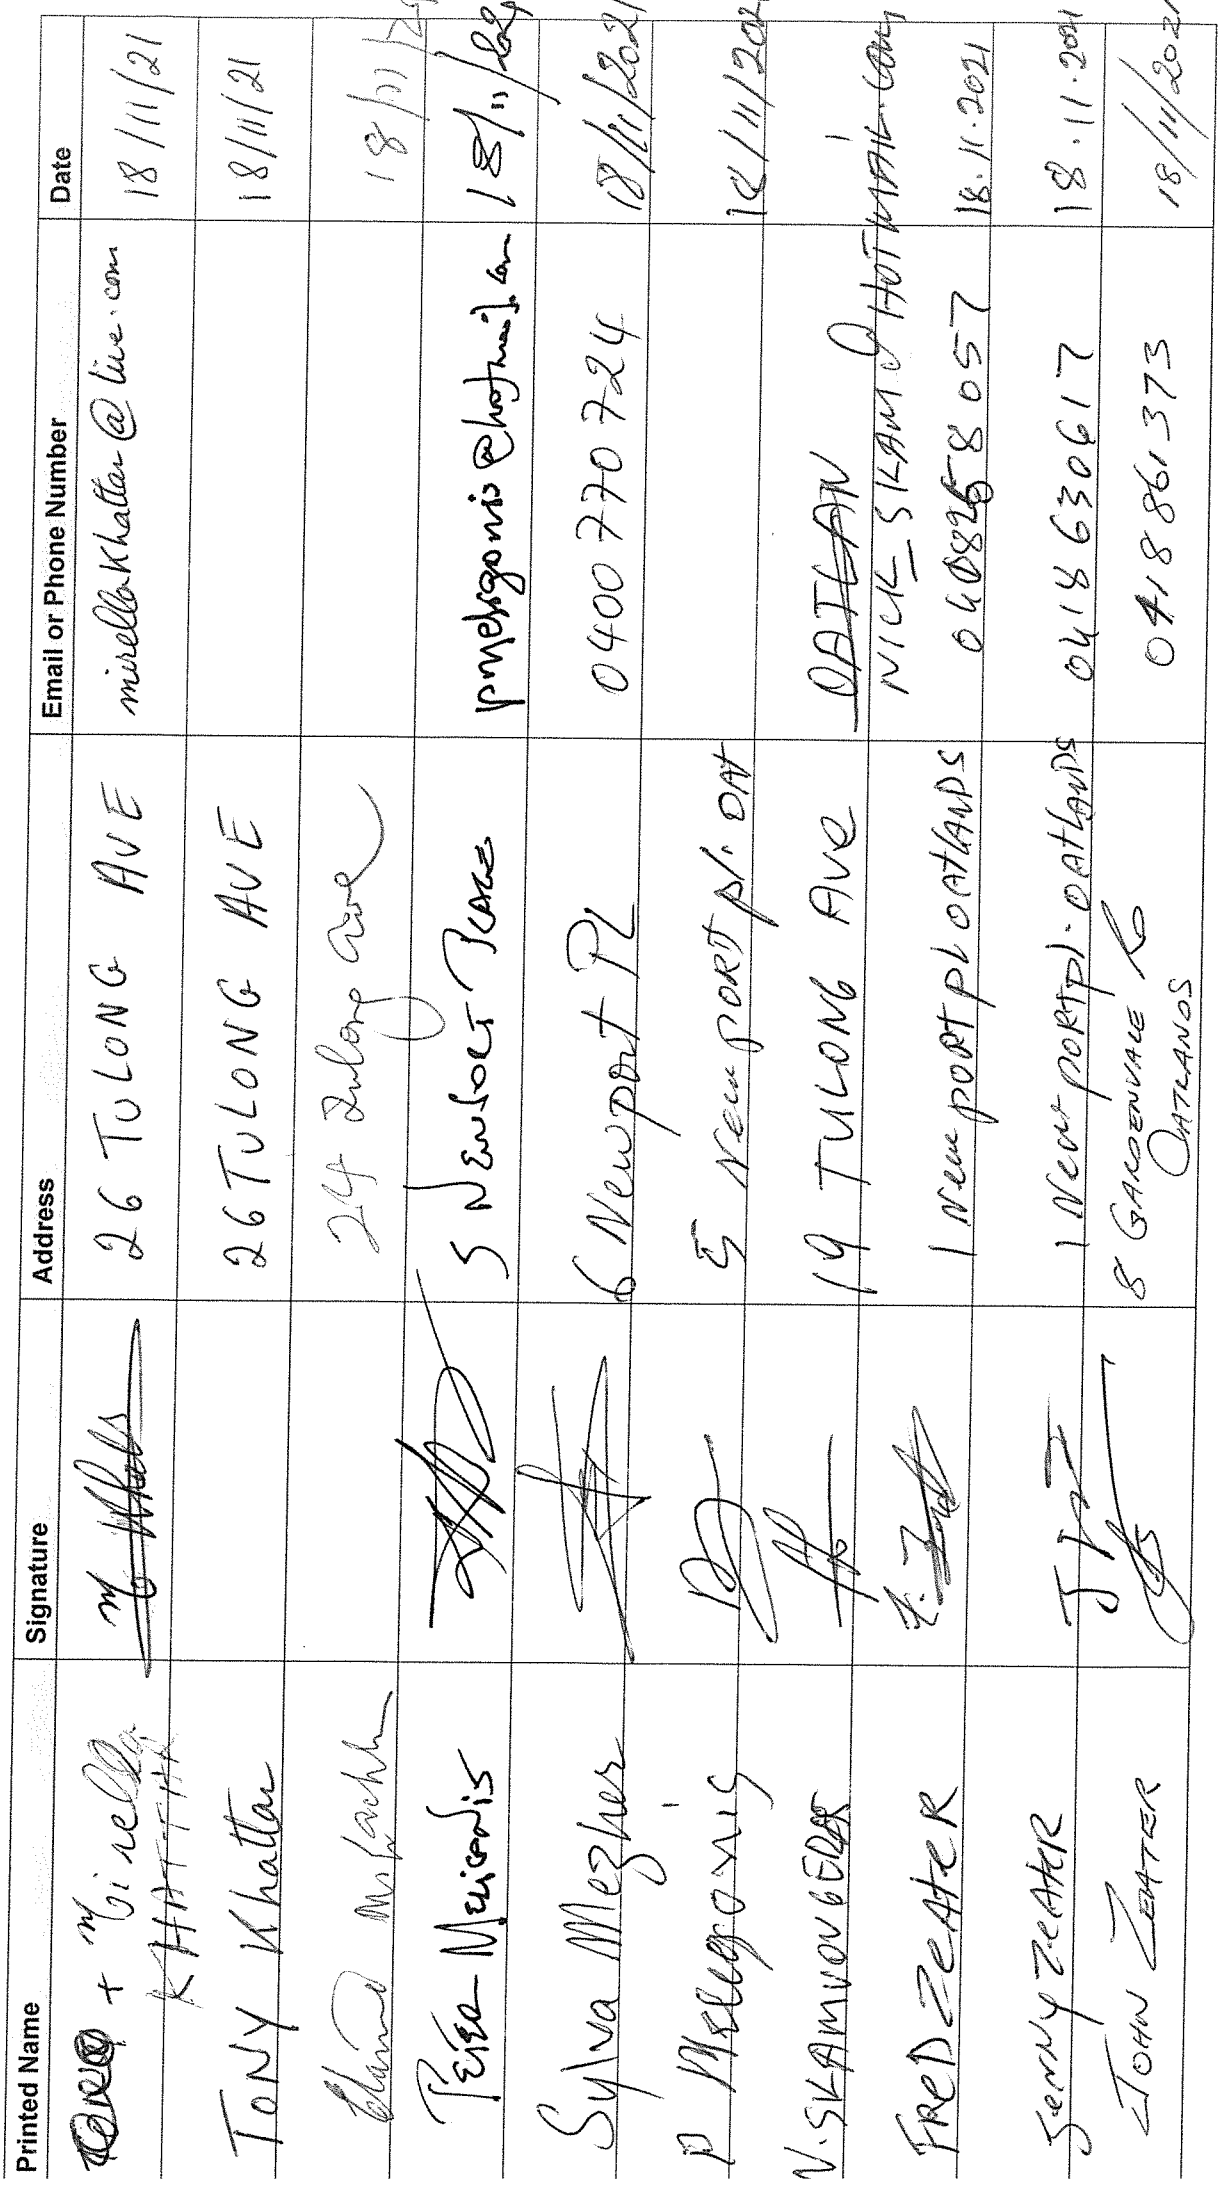 Printed Name Signature Address Email or Phone Number Date
+ Mirella KHATTAR 26 TULONG AVE mirellakhattar@live.com 18/11/21
TONY Khattar 26 TULONG AVE 18/11/21
24 Tulong Ave 18/11/
PETER MELIGONIS 5 NEWPORT PLACE @hotmail.com 18/11/2021
Sylva Mezher 6 Newport PL 0400770724 18/11/2021
P 5 New port pl. OAT /11/202
N. 19 TULONG AVE OATLAN
NICK_SKAM@HOTMAIL.COM
FRED ZEATER 1 New port pl OATLANDS 18.11.2021
JENNY ZEATER 1 New port pl. OATLANDS 0418630617 18.11.2021
JOHN ZEATER 8 GARDENVALE RD 0418861373 18/11/2021
OATLANDS